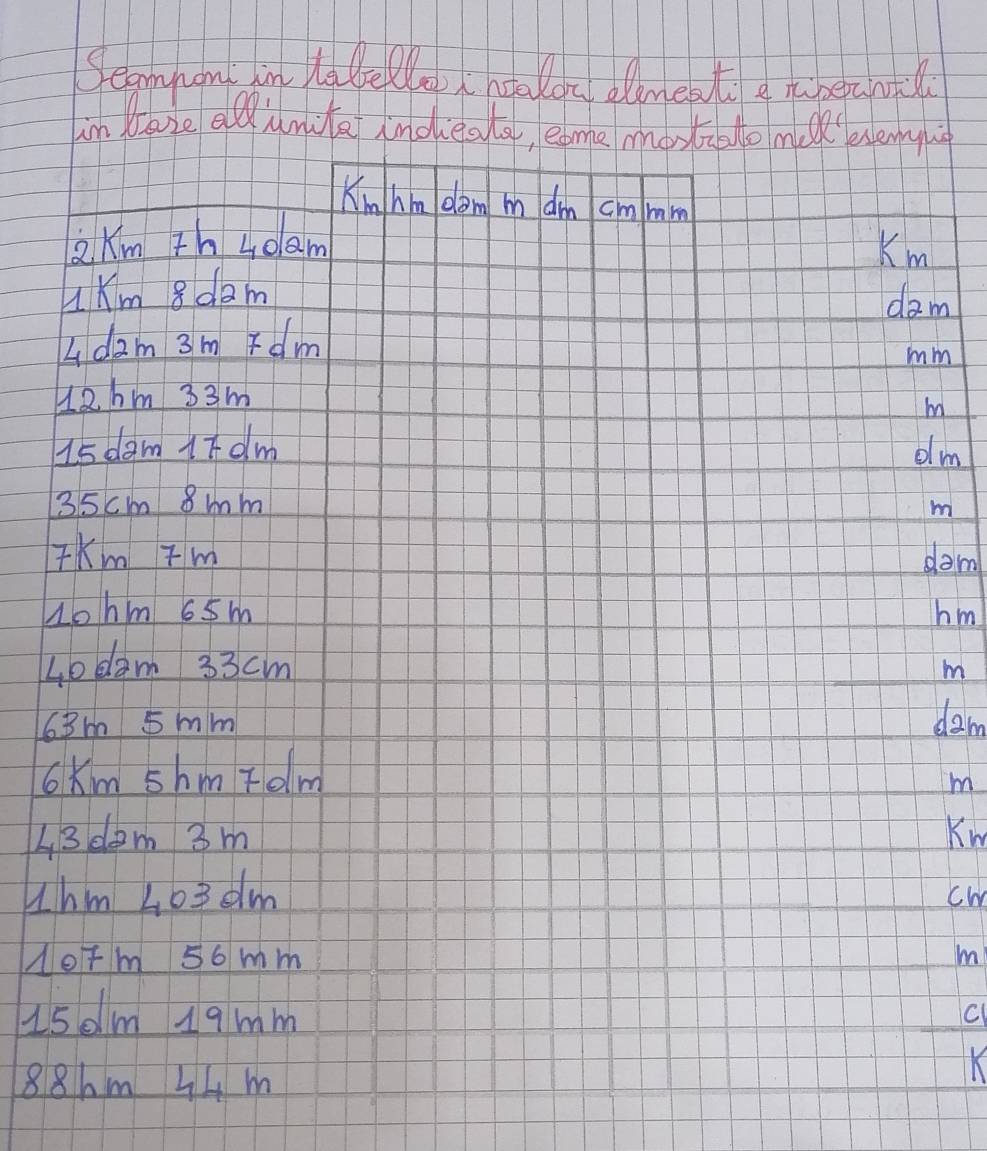 Scomponi in tabella i valori elencati e riscrivili
in base all'unità indicata, come mostrato nell'esempio
Km hm dam m dm cm mm
2 Km 7h 4dam Km
1 Km 8 dam dam
4 dam 3m 7 dm mm
12 hm 33m m
15 dam 17 dm dm
35 cm 8 mm m
7Km 7m dam
10 hm 65m hm
40 dam 33 cm m
63m 5 mm dam
6Km 5hm 7dm m
43 dam 3 m Km
1 hm 403 dm cm
107 m 56 mm m
15 dm 19 mm c
88hm 44 m K